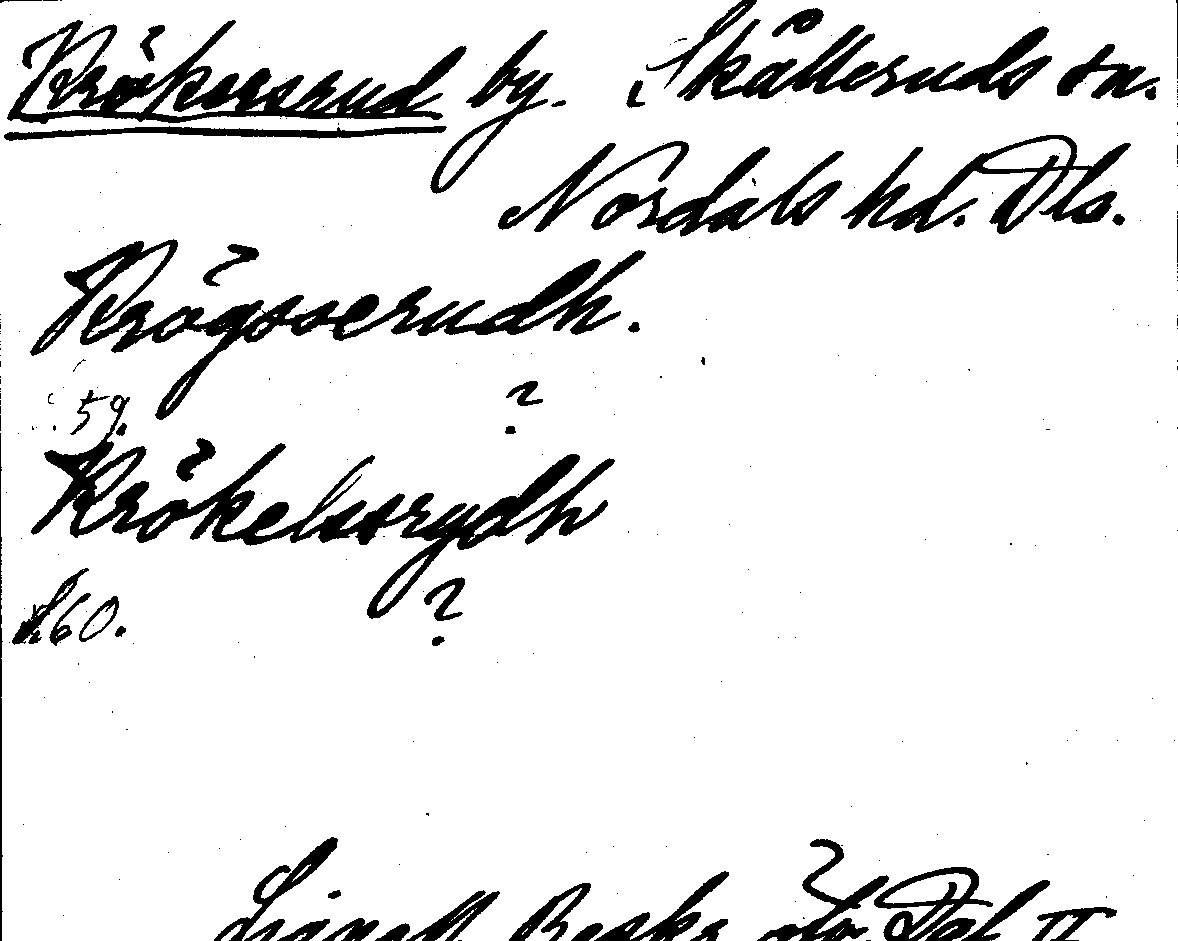 Krökersrud by. Skålleruds sn.
Nordals hd. Dls.
Krögsserudh.
59. ?
Krökelssrydh
s. 60. ?
Lignell Beskr. öfv. Dal II